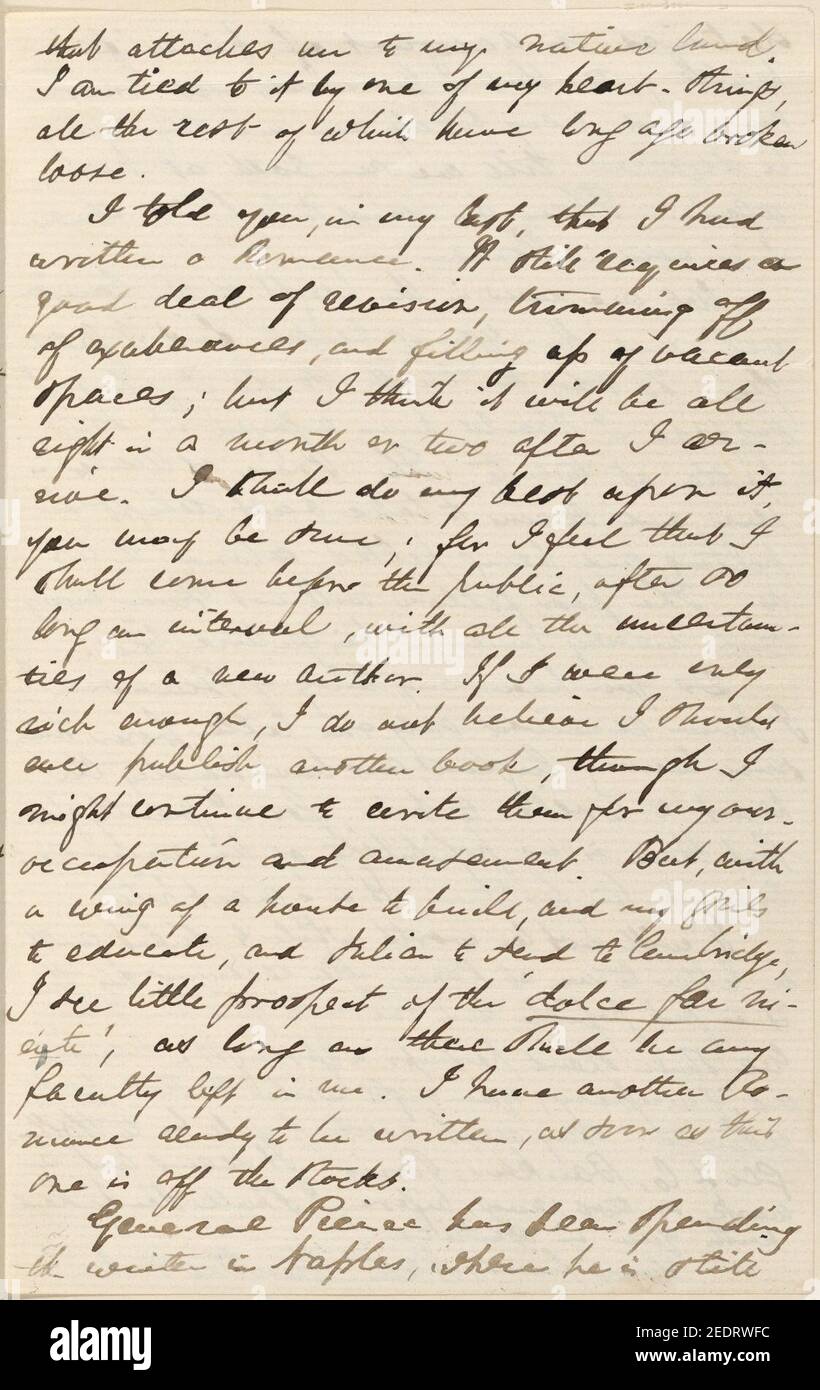 that attaches me to my native land.
I am tied to it by one of my heart-strings,
all the rest of which have long ago broken
loose.
I told you, in my last, that I had
written a Romance. It still requires a
good deal of revision, trimming off
of exuberances, and filling up of vacant
spaces; but I think it will be all
right in a month or two after I ar-
rive. I shall do my best upon it,
you may be sure; for I feel that I
shall come before the public, after so
long an interval, with all the uncertain-
ties of a new author. If I were only
rich enough, I do not believe I should
ever publish another book, though I
might continue to write them for my own
occupation and amusement. But, with
a wing of a house to build, and my girls
to educate, and Julian to send to Cambridge,
I see little prospect of the 'dolce far ni-
ente', as long as there shall be any
faculty left in me. I have another Ro-
mance ready to be written, as soon as this
one is off the stocks.
General Pierce has been spending
the winter in Naples, where he is still
alamy
alamy
alamy
alamy
alamy
Image ID: 2EDRWFC
www.alamy.com